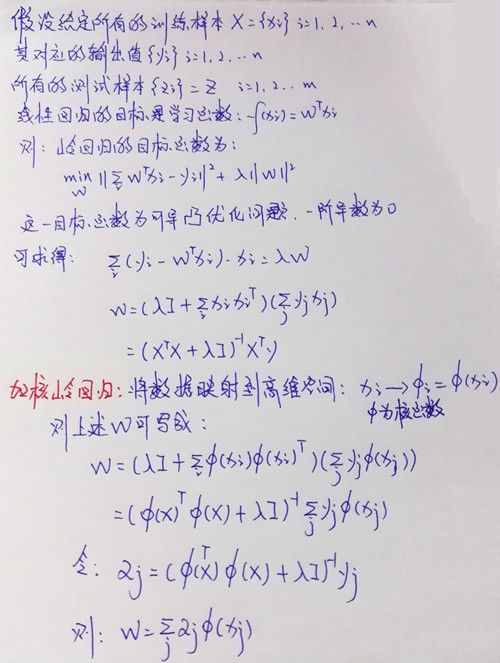 假设给定所有的训练样本 X={xi} i=1,2,…n
其对应的输出值{yi} i=1,2,…n
所有的测试样本{zi}=Z i=1,2…m
线性回归的目标是学习函数: f(xi)=wᵀxi
则: 岭回归的目标函数为:
min_w ||Σ_i wᵀxi-yi||²+λ||w||²
这一目标函数为可导凸优化问题,一阶导数为0
可求得: Σ_i (yi-wᵀxi)·xi=λw
w=(λI+Σ_i xi xiᵀ)(Σ_j yj xj)
=(XᵀX+λI)⁻¹Xᵀy
加核岭回归: 将数据映射到高维空间: xi→ϕi=ϕ(xi)
ϕ为核函数
则上述w可写成:
w=(λI+Σ_i ϕ(xi)ϕ(xi)ᵀ)(Σ_j yjϕ(xj))
=(ϕ(x)ᵀϕ(x)+λI)⁻¹Σ_j yjϕ(xj)
令: αj=(ϕ(x)ᵀϕ(x)+λI)⁻¹yj
则: w=Σ_j αjϕ(xj)